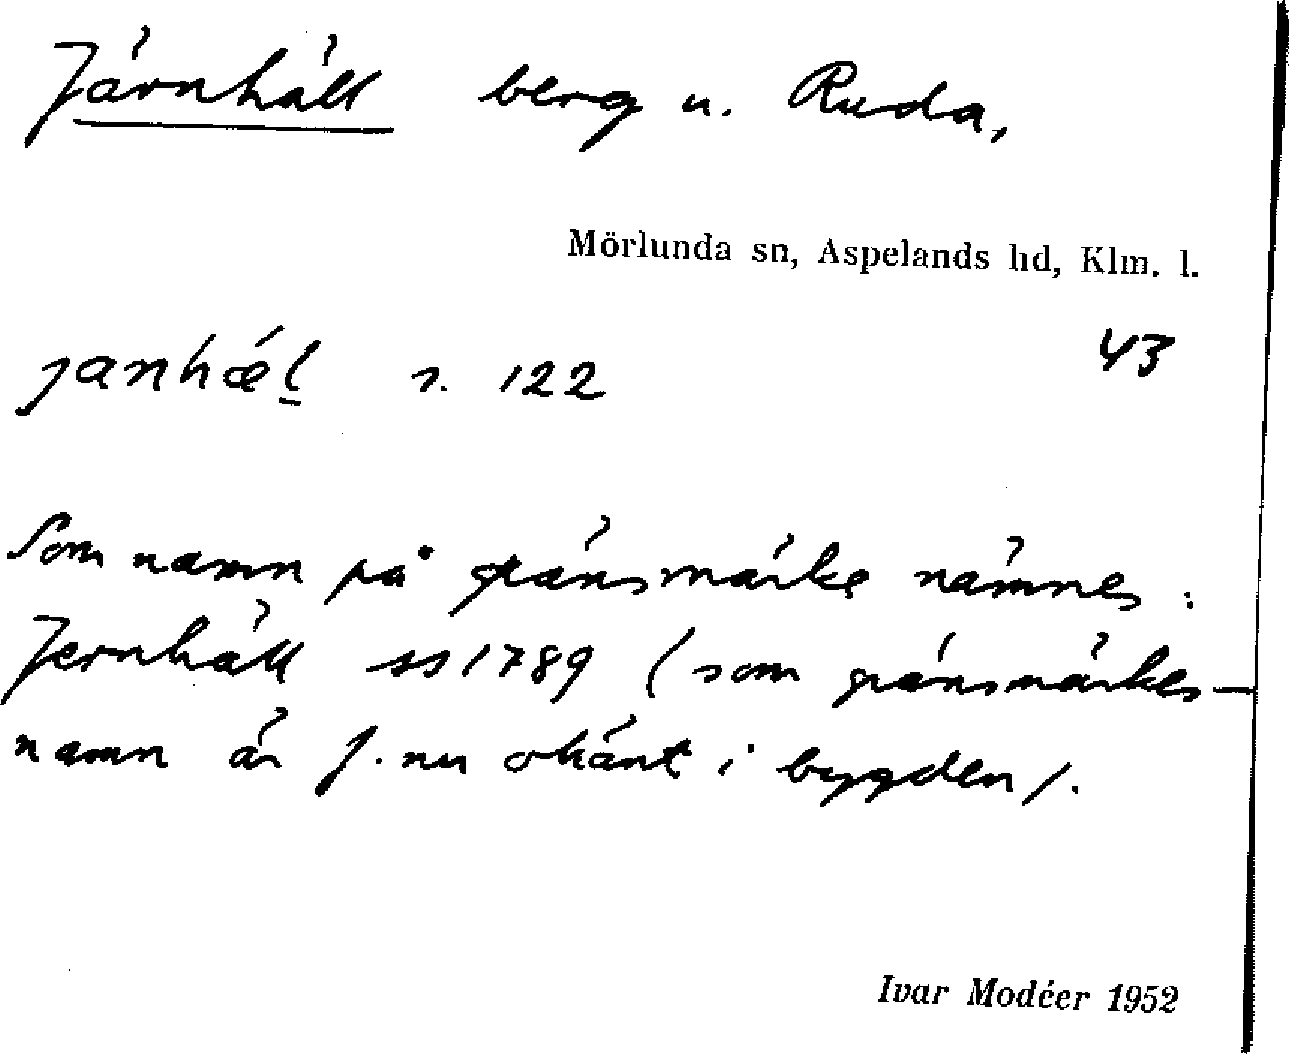 Järnhäll berg u. Ruda,
Mörlunda sn, Aspelands hd, Klm. l.
janhǽl s. 122 43
Som namn på gränsmärke nämnes:
Jernhäll ss 1789 (som gränsmärkes-
namn är J. nu okänt i bygden).
Ivar Modéer 1952